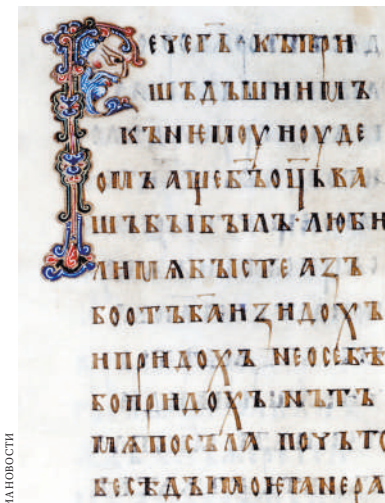 РЕЧЕ Г҃Ь КЪ ПРИ
ШЬДЪШИИМЪ
КЪ НЕМОУ ИОУДЕ
ОМЪ АЩЕ Б҃Ъ ОЦ҃Ь ВА
ШЬ БЫ БЫЛЪ· ЛЮБИ
ЛИ МѦ БЫСТЕ АЗЪ
БО ОТЪ Б҃А ИЗИДОХЪ
И ПРИДОХЪ НЕ О СЕБѢ
БО ПРИДОХЪ НЪ ТЪ
МѦ ПОСЪЛА ПОЧЬТО
БЕСѢДЫ МОѤѦ НЕ РА
ИА НОВОСТИ